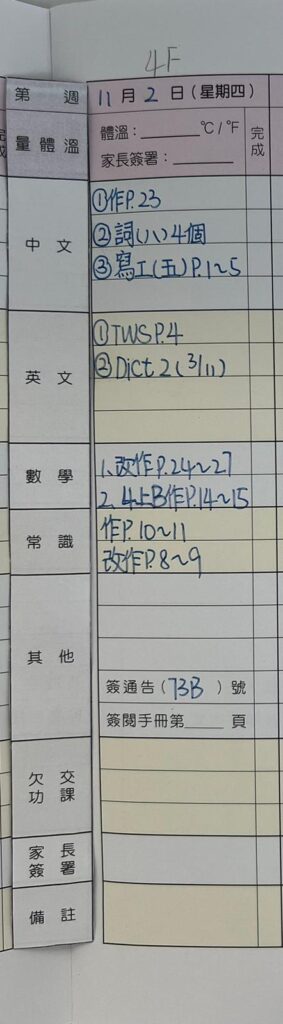 4F
第 週 11月2日(星期四)
量體溫 體溫：______℃/℉ 完成
家長簽署：______
中文 ①作P.23
②詞(八)4個
③寫工(五)P.1~5
英文 ①TWS P.4
②Dict 2 (3/11)
數學 1.改作P.24~27
2.4上B作P.14~15
常識 作P.10~11
改作P.8~9
其他
簽通告(73B)號
簽閱手冊第____頁
欠交功課
家長簽署
備註